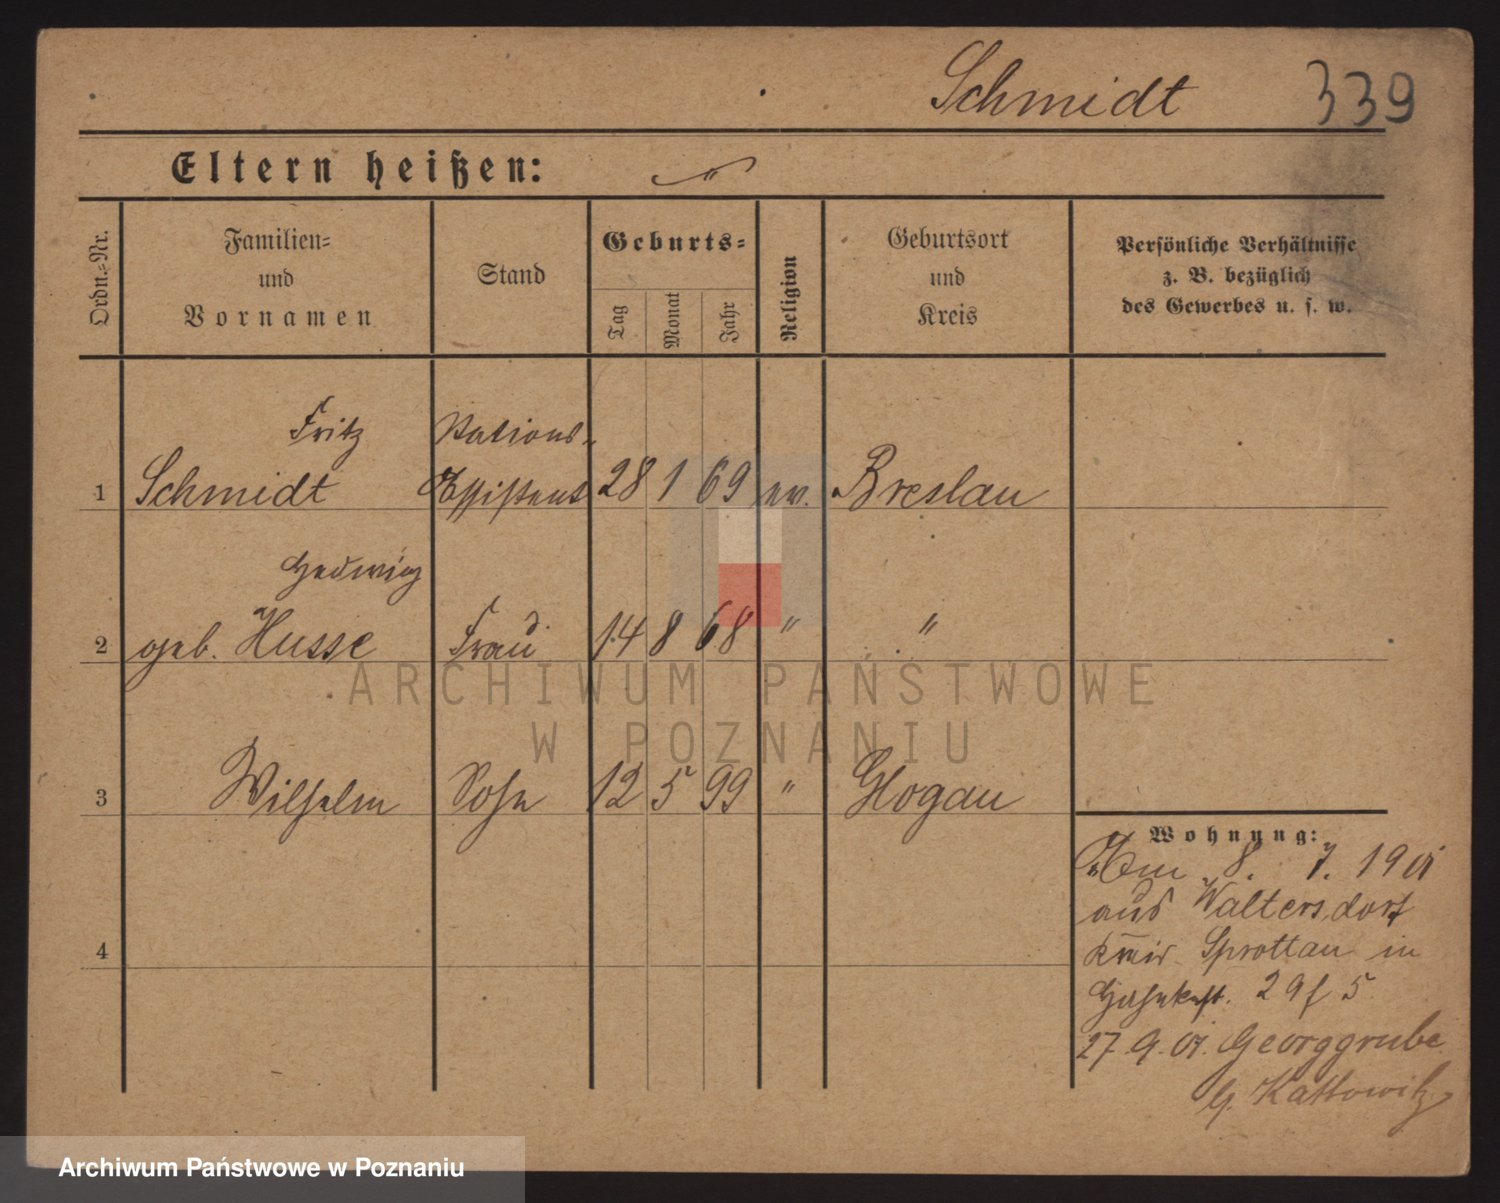 Schmidt 339
Eltern heißen: "
Ordn.-Nr.
Familien-
und
Vornamen
Stand
Geburts-
Tag
Monat
Jahr
Religion
Geburtsort
und
Kreis
Persönliche Verhältnisse
z. B. bezüglich
des Gewerbes u. s. w.
Fritz Stations-
1 Schmidt Assistent 28 1 69 ev. Breslau
Hedwig
2 geb. Husse Frau 14 8 68 " "
3 Wilhelm Sohn 12 5 99 " Glogau
4
Wohnung:
Am 8. 7. 1901
aus Waltersdorf
Kreis Sprottau in
29 5
27. 9. 01. Georggrube
b. Kattowitz
ARCHIWUM PAŃSTWOWE
W POZNANIU
Archiwum Państwowe w Poznaniu